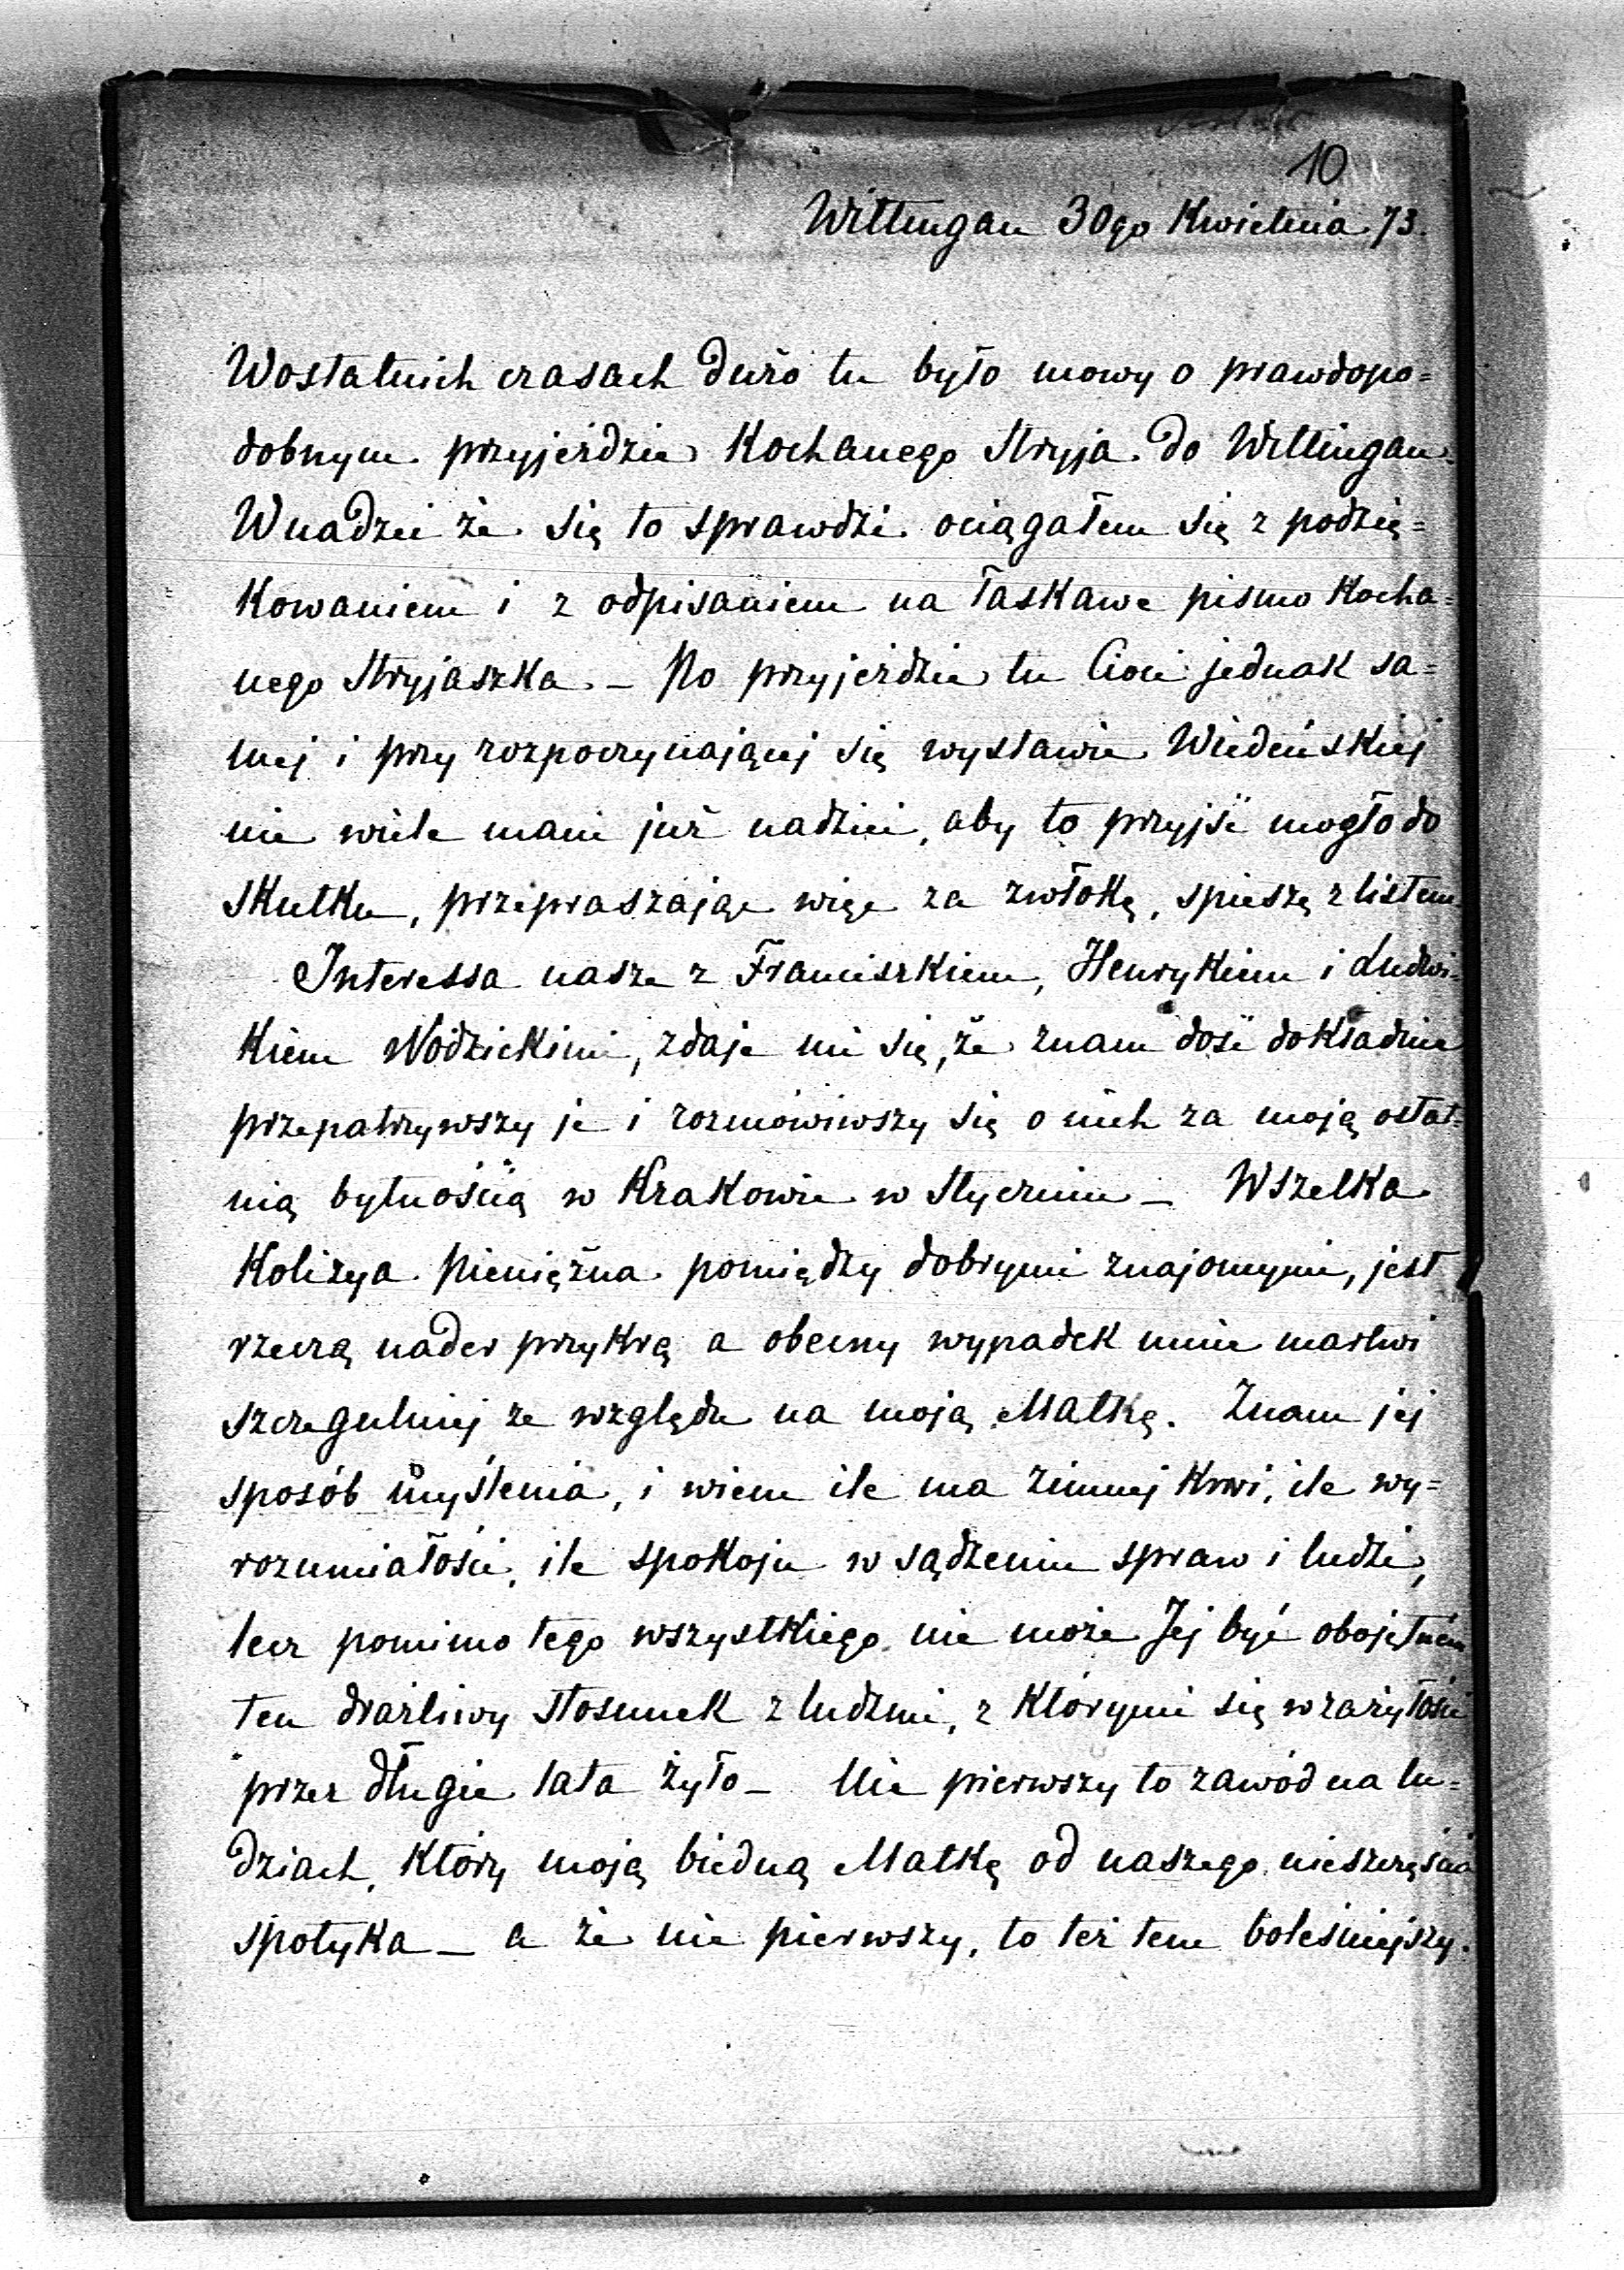 10
Wittingau 30go Kwietnia 73.
W ostatnich czasach dużo tu było mowy o prawdopo=
dobnym przyjeździe Kochanego Stryja do Wittingau.
W nadziei że się to sprawdzi ociągałem się z podzię=
kowaniem i z odpisaniem na łaskawe pismo Kocha=
nego Stryjaszka – Po przyjeździe tu Cioci jednak sa=
mej i przy rozpoczynającej się wystawie Wiedeńskiej
nie wiele mam już nadziei, aby to przyjść mogło do
skutku, przepraszając więc za zwłokę, spieszę z listem
Interessa nasze z Franciszkiem, Henrykiem i Ludwi=
kiem Wodzickimi, zdaje mi się, że znam dość dokładnie
przepatrzywszy je i rozmówiwszy się o nich za moją ostat=
nią bytnością w Krakowie w Styczniu – Wszelka
Kolizya pieniężna pomiędzy dobrymi znajomymi, jest
rzeczą nader przykrą a obecny wypadek mnie martwi
szczegulniej ze względu na moją Matkę. Znam jej
sposób myślenia, i wiem ile ma zimnej krwi, ile wy=
rozumiałości, ile spokoju w sądzeniu spraw i ludzi,
lecz pomimo tego wszystkiego nie może Jej być obojętnem
ten drażliwy stosunek z ludźmi, z którymi się w zażyłości
przez długie lata żyło – Nie pierwszy to zawód na lu=
dziach, który moją biedną Matkę od naszego nieszczęścia
spotyka – a że nie pierwszy, to też tem boleśniejszy.